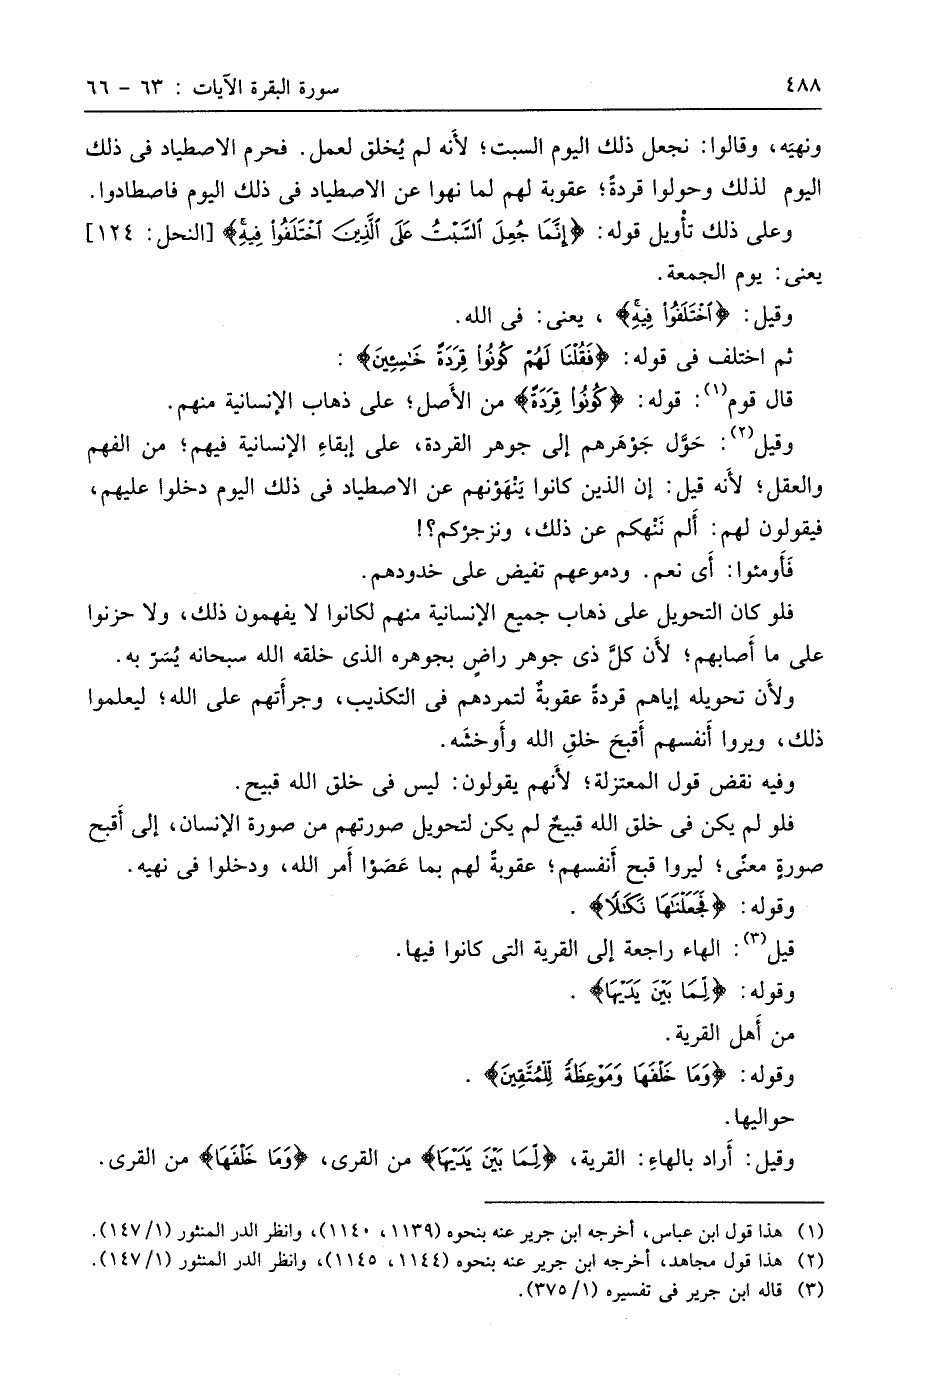 ٤٨٨
سورة البقرة الآيات : ٦٣ - ٦٦
ونهيَه، وقالوا: نجعل ذلك اليوم السبت؛ لأَنه لم يُخلق لعمل. فحرم الاصطياد فى ذلك
اليوم لذلك وحولوا قردةً؛ عقوبة لهم لما نهوا عن الاصطياد فى ذلك اليوم فاصطادوا.
وعلى ذلك تأْويل قوله: ﴿إِنَّمَا جُعِلَ ٱلسَّبْتُ عَلَى ٱلَّذِينَ ٱخْتَلَفُوا۟ فِيهِۚ﴾ [النحل: ١٢٤]
يعنى: يوم الجمعة.
وقيل: ﴿ٱخْتَلَفُوا۟ فِيهِۚ﴾ ، يعنى: فى الله.
ثم اختلف فى قوله: ﴿فَقُلْنَا لَهُمْ كُونُوا۟ قِرَدَةً خَـٰسِـِٔينَ﴾ :
قال قوم(١): قوله: ﴿كُونُوا۟ قِرَدَةً﴾ من الأَصل؛ على ذهاب الإنسانية منهم.
وقيل(٢): حَوَّل جَوْهَرهم إلى جوهر القردة، على إبقاءِ الإنسانية فيهم؛ من الفهم
والعقل؛ لأَنه قيل: إن الذين كانوا يَنْهَوْنهم عن الاصطياد فى ذلك اليوم دخلوا عليهم،
فيقولون لهم: أَلم نَنْهكم عن ذلك، ونزجرْكم؟!
فَأَومئوا: أَى نعم. ودموعهم تفيض على خدودهم.
فلو كان التحويل على ذهاب جميع الإنسانية منهم لكانوا لا يفهمون ذلك، ولا حزنوا
على ما أَصابهم؛ لأَن كلَّ ذى جوهر راضٍ بجوهره الذى خلقه الله سبحانه يُسَرّ به.
ولأَن تحويله إياهم قردةً عقوبةٌ لتمردهم فى التكذيب، وجرأَتهم على الله؛ ليعلموا
ذلك، ويروا أَنفسهم أَقبحَ خلقِ الله وأَوحشَه.
وفيه نقض قول المعتزلة؛ لأَنهم يقولون: ليس فى خلق الله قبيح.
فلو لم يكن فى خلق الله قبيحٌ لم يكن لتحويل صورتهم من صورة الإنسان، إلى أَقبح
صورةٍ معنًى؛ ليروا قبح أَنفسهم؛ عقوبةً لهم بما عَصَوْا أَمر الله، ودخلوا فى نهيه.
وقوله: ﴿فَجَعَلْنَـٰهَا نَكَـٰلًا﴾ .
قيل(٣): الهاء راجعة إلى القرية التى كانوا فيها.
وقوله: ﴿لِّمَا بَيْنَ يَدَيْهَا﴾ .
من أَهل القرية.
وقوله: ﴿وَمَا خَلْفَهَا وَمَوْعِظَةً لِّلْمُتَّقِينَ﴾ .
حواليها.
وقيل: أَراد بالهاءِ: القرية، ﴿لِّمَا بَيْنَ يَدَيْهَا﴾ من القرى، ﴿وَمَا خَلْفَهَا﴾ من القرى.
(١) هذا قول ابن عباس، أخرجه ابن جرير عنه بنحوه (١١٣٩، ١١٤٠)، وانظر الدر المنثور (١/١٤٧).
(٢) هذا قول مجاهد، أخرجه ابن جرير عنه بنحوه (١١٤٤، ١١٤٥)، وانظر الدر المنثور (١/١٤٧).
(٣) قاله ابن جرير فى تفسيره (١/ ٣٧٥).